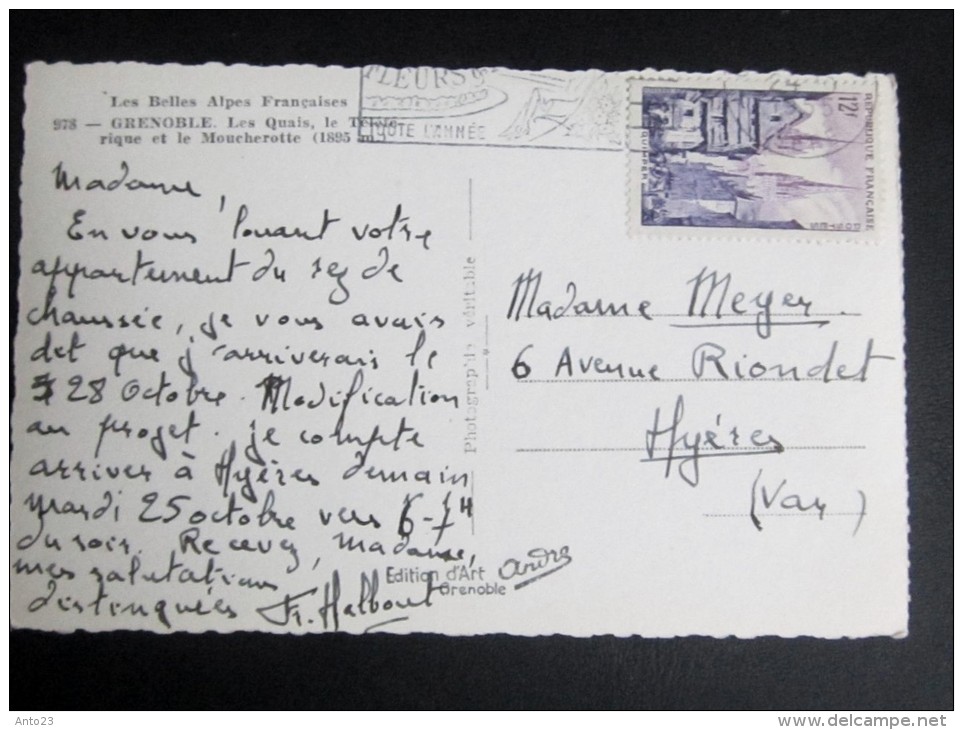 Les Belles Alpes Françaises
978 — GRENOBLE. Les Quais, le Téléfé-
rique et le Moucherotte (1895 m.)
FLEURS
TOUTE L'ANNÉE
12f
REPUBLIQUE FRANÇAISE
POSTES
QUIMPER
Madame,
En vous louant votre
appartement du rez de
chaussée, je vous avais
dit que j'arriverais le
28 Octobre. Modification
au projet. je compte
arriver à Hyères demain
mardi 25 octobre vers 6-7H
du soir. Recevez, Madame,
mes salutations
distinguées Fr. Halbout
Photographie véritable
Edition d'Art
Grenoble
André
Madame Meyer.
6 Avenue Riondet
Hyères
(Var)
Anto23
www.delcampe.net